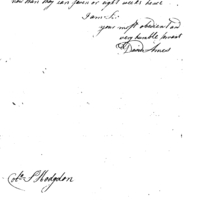 now than they can four or eight weeks hence
I am Sir
your most obedient and
very humble servant
David Ames
Col. S Hodgdon